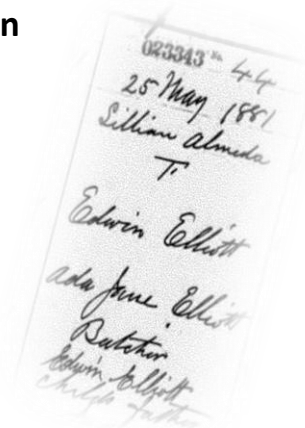 n
023343 44
25 May 1881
Lillian Almeda
F.
Edwin Elliott
Ada Jane Elliott
Butcher
Edwin Elliott
Child's father